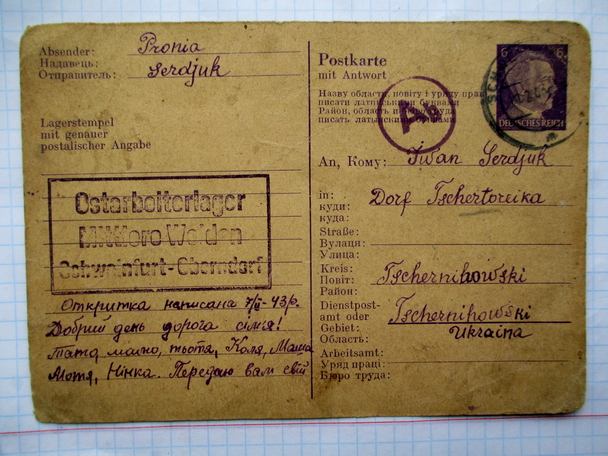 Absender: Pronia
Надавець:
Отправитель: Serdjuk
Lagerstempel
mit genauer
postalischer Angabe
Ostarbeiterlager
Mittlere Weiden
Schweinfurt-Oberndorf
Откритка написана 7/III-43р.
Добрий день дорога сім'я!
Тато, мамо, тьотя, Коля, Маша
Мотя, Нінка. Передаю вам свій
Postkarte
mit Antwort
Назву області, повіту і уряду праці
писати латинськими буквами
Район, область и бюро труда
писать латинскими буквами
6 6
DEUTSCHES REICH
An, Кому: Iwan Serdjuk
in: Dorf Tschertoreika
куди:
куда:
Straße:
Вулаця:
Улица:
Kreis: Tschernihowski
Повіт:
Район:
Dienstpost-
amt oder Tschernihowski
Gebiet: Ukraina
Область:
Arbeitsamt:
Уряд праці:
Бюро труда: